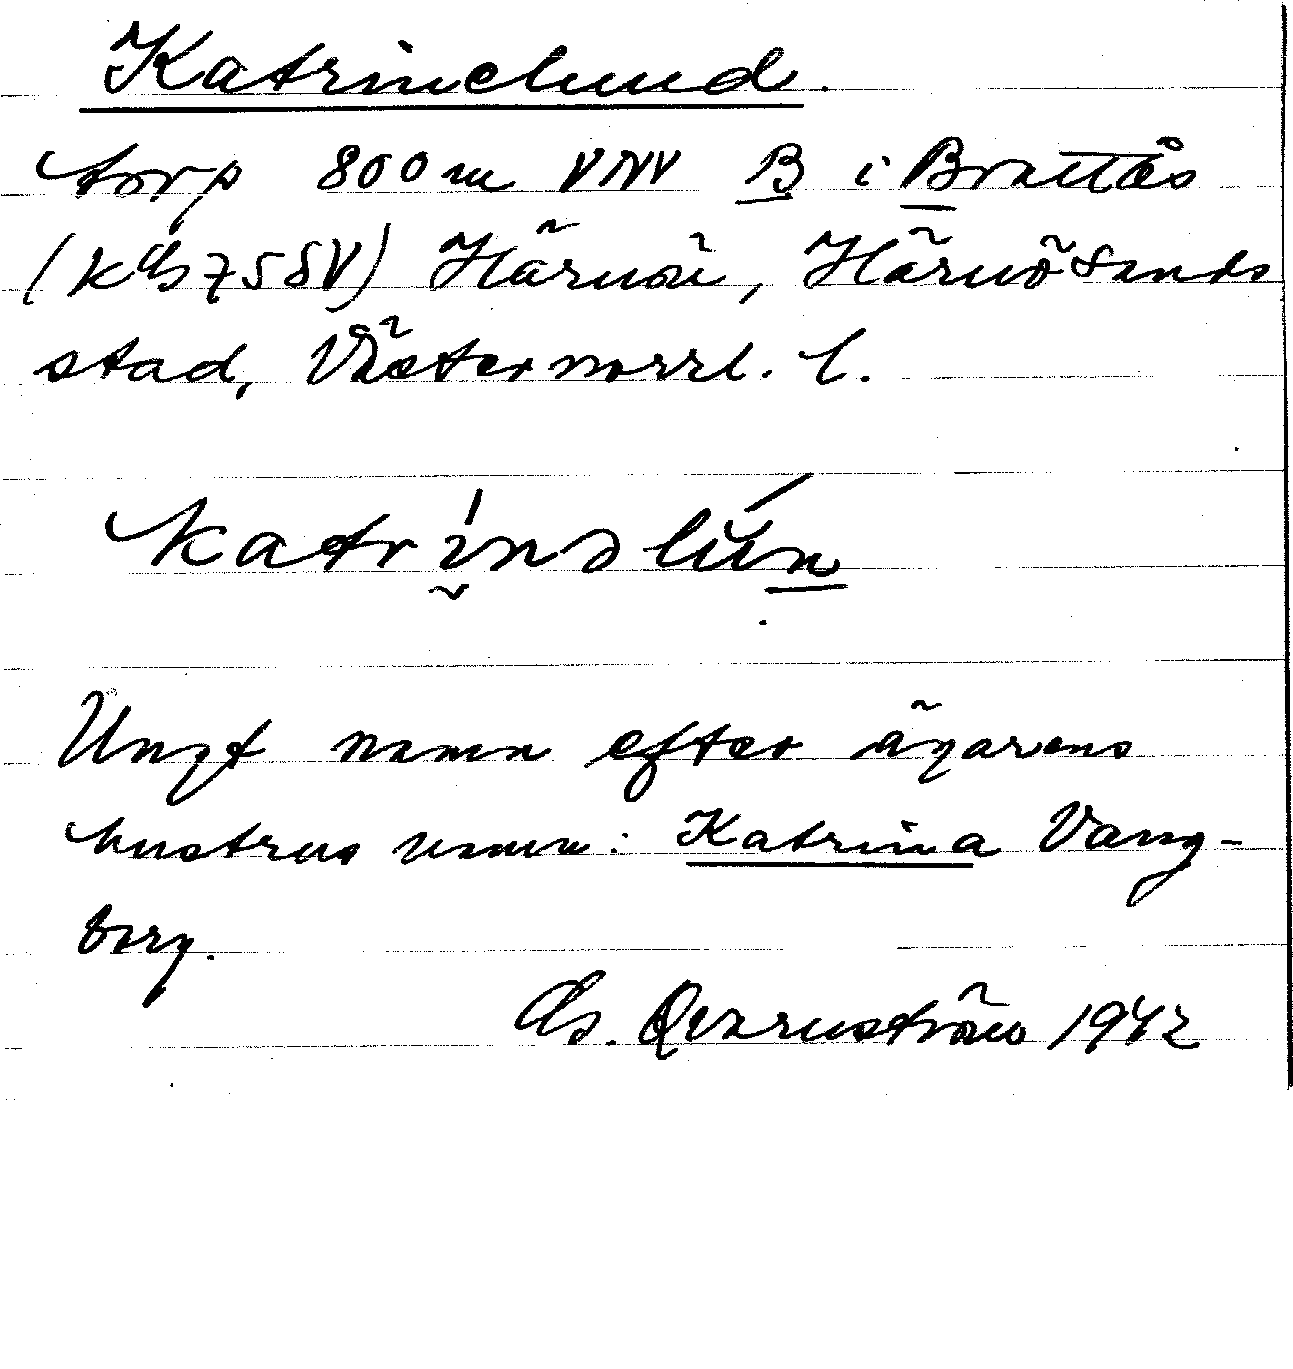 Katrinelund.
torp 800 m VNV B i Brattås
(Kbl 75 SV) Härnön, Härnösands
stad, Västernorrl. l.
katrinəlún
Ungt namn efter ägarens
hustrus namn: Katrina Vang-
berg.
As. Qvarnström 1942